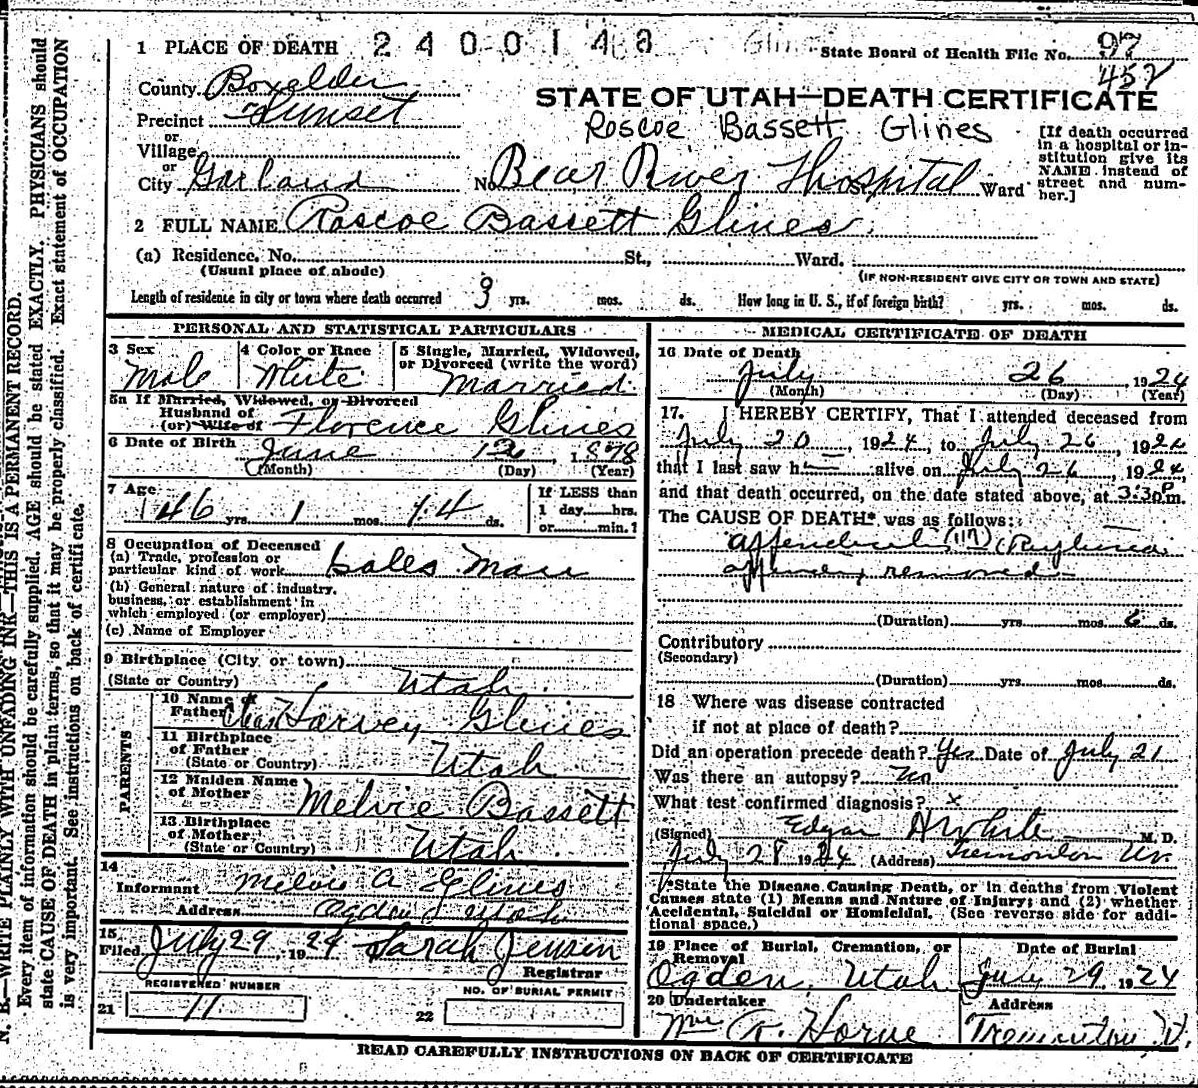 1 PLACE OF DEATH 2400148 Glines State Board of Health File No. 97
452
County Boxelder
STATE OF UTAH—DEATH CERTIFICATE
Precinct Sunset
Roscoe Bassett Glines
or
Village
or
City Garland No. Bear River Hospital St., Ward
[If death occurred in a hospital or in-
stitution give its
NAME instead of
street and num-
ber.]
2 FULL NAME Roscoe Bassett Glines
(a) Residence. No. St., Ward.
(Usual place of abode) (IF NON-RESIDENT GIVE CITY OR TOWN AND STATE)
Length of residence in city or town where death occurred 3 yrs. mos. ds. How long in U. S., if of foreign birth? yrs. mos. ds.
PERSONAL AND STATISTICAL PARTICULARS
3 Sex Male
4 Color or Race White
5 Single, Married, Widowed,
or Divorced (write the word)
Married
5a If Married, Widowed, or Divorced
Husband of
(or) Wife of Florence Glines
6 Date of Birth June 12, 1878
(Month) (Day) (Year)
7 Age 46 yrs. 1 mos. 14 ds.
If LESS than
1 day hrs.
or min.?
8 Occupation of Deceased
(a) Trade, profession or
particular kind of work Sales Man
(b) General nature of industry,
business, or establishment in
which employed (or employer)
(c) Name of Employer
9 Birthplace (City or town)
(State or Country) Utah
PARENTS
10 Name of
Father Chas Harvey Glines
11 Birthplace
of Father
(State or Country) Utah
12 Maiden Name
of Mother Melvie Bassett
13 Birthplace
of Mother
(State or Country) Utah
14
Informant Melvie A. Glines
Address Ogden Utah
15
Filed July 29, 1924 Sarah Jensen
Registrar
REGISTERED NUMBER
21 11
NO. OF BURIAL PERMIT
22
MEDICAL CERTIFICATE OF DEATH
16 Date of Death
July 26, 1924
(Month) (Day) (Year)
17. I HEREBY CERTIFY, That I attended deceased from
July 20, 1924, to July 26, 1924
that I last saw h alive on July 26, 1924,
and that death occurred, on the date stated above, at 3:30 P m.
The CAUSE OF DEATH* was as follows:
(117)
removed
(Duration) yrs. mos. 6 ds.
Contributory
(Secondary)
(Duration) yrs. mos. ds.
18 Where was disease contracted
if not at place of death?
Did an operation precede death? Yes Date of July 21
Was there an autopsy? No
What test confirmed diagnosis? x
(Signed) Edgar H White M. D.
July 28 1924 (Address) Tremonton Ut.
*State the Disease Causing Death, or in deaths from Violent
Causes state (1) Means and Nature of Injury; and (2) whether
Accidental, Suicidal or Homicidal. (See reverse side for addi-
tional space.)
19 Place of Burial, Cremation, or
Removal
Ogden, Utah
Date of Burial
July 29, 1924
20 Undertaker
Wm R. Horne
Address
Tremonton, U.
READ CAREFULLY INSTRUCTIONS ON BACK OF CERTIFICATE
N. B.—WRITE PLAINLY WITH UNFADING INK—THIS IS A PERMANENT RECORD.
Every item of information should be carefully supplied. AGE should be stated EXACTLY. PHYSICIANS should
state CAUSE OF DEATH in plain terms, so that it may be properly classified. Exact statement of OCCUPATION
is very important. See instructions on back of certificate.